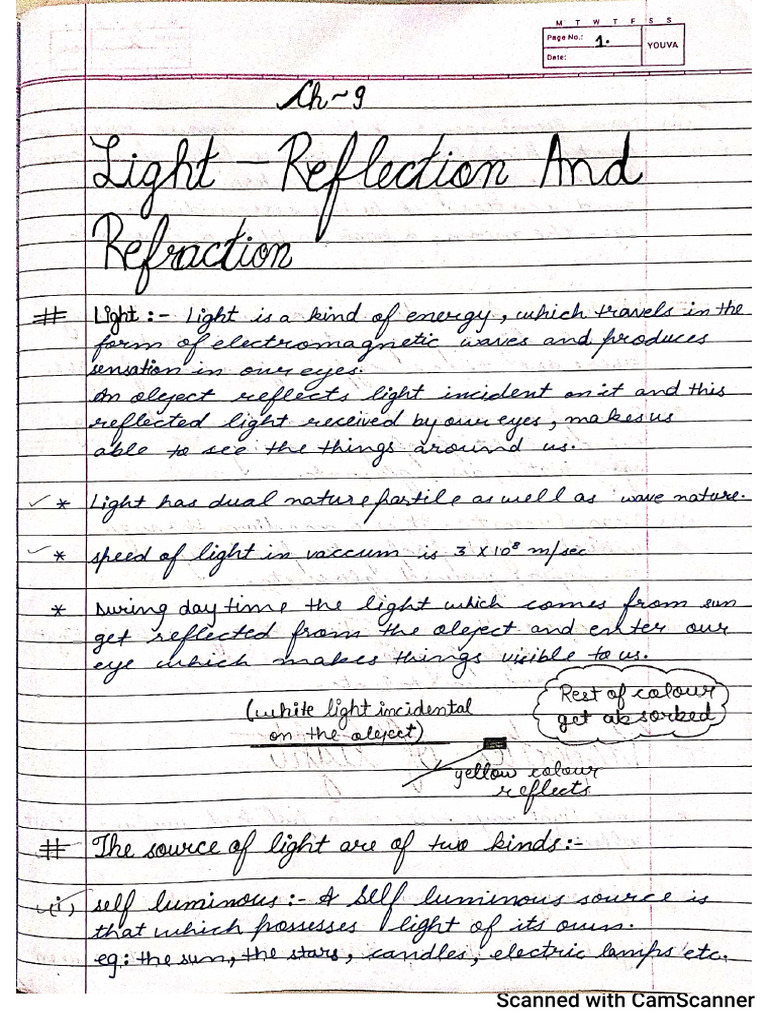 M T W T F S S
Page No.: 1.
YOUVA
Date:
Ch~9
Light - Reflection And
Refraction
# Light :- Light is a kind of energy, which travels in the
form of electromagnetic waves and produces
sensation in our eyes.
An object reflects light incident on it and this
reflected light received by our eyes, makes us
able to see the things around us.
* Light has dual nature partile as well as wave nature.
* speed of light in vaccum is 3 x 10⁸ m/sec
* During day time the light which comes from sun
get reflected from the object and enter our
eye which makes things visible to us.
(white light incidental
on the object)
Rest of colour
get absorbed
yellow colour
reflects
# The source of light are of two kinds:-
(i) self luminous :- A Self luminous source is
that which possesses light of its own.
eg: the sun, the stars, candles, electric lamps etc.
Scanned with CamScanner